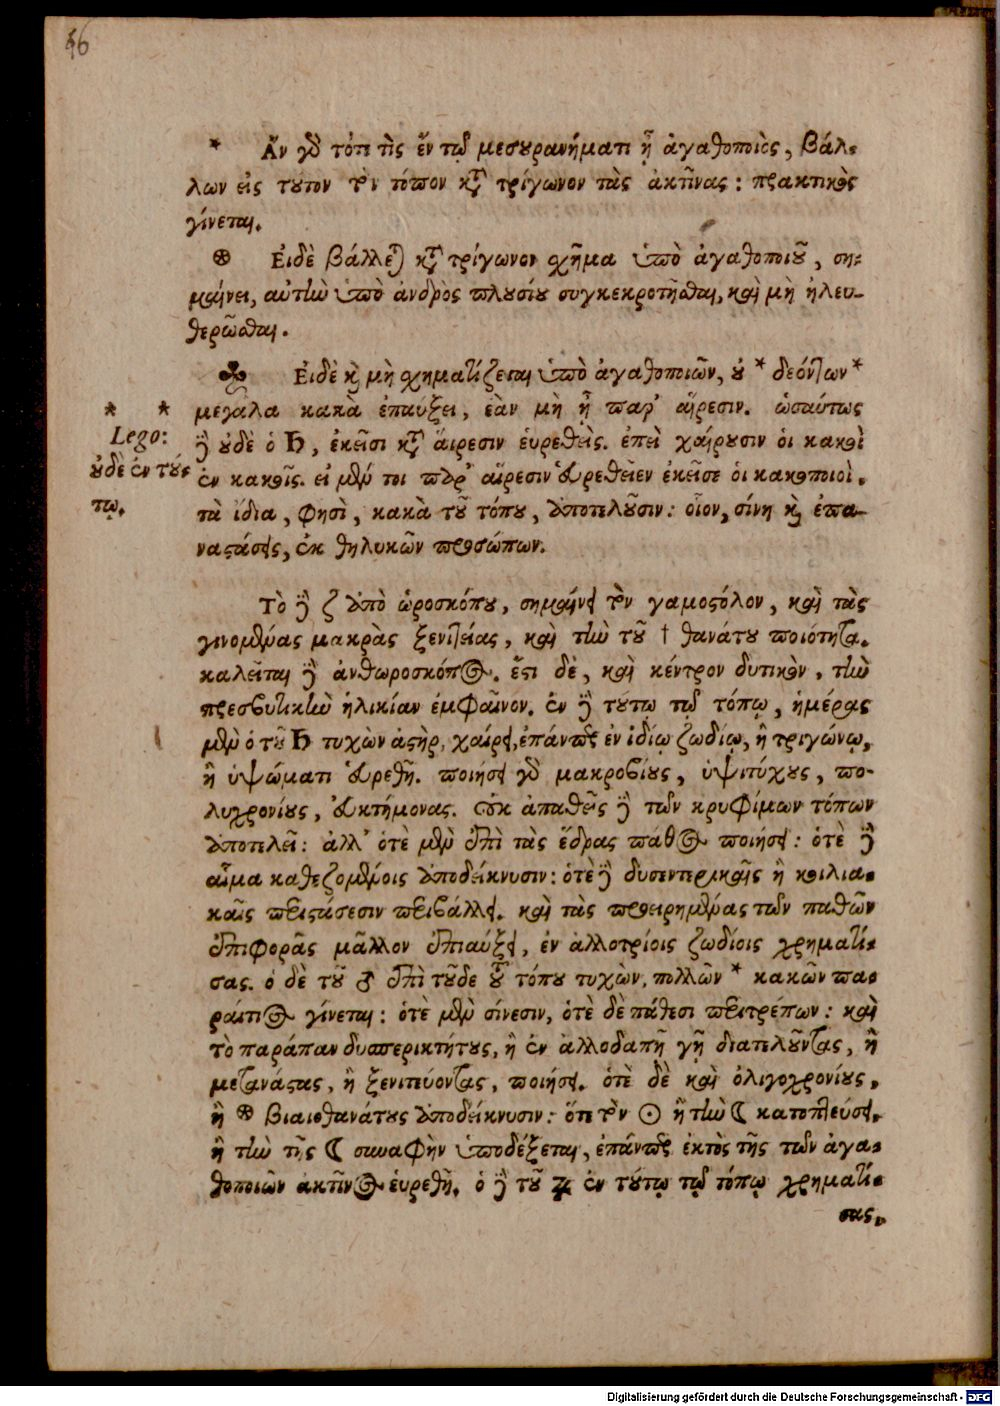 46
* Ἂν γὸ τότε τὶς ἔν τῷ μεσουρανήματι ᾖ ἀγαθοποιὸς, βάλ-
λων εἰς τοῦτον τὸν τόπον κατὰ τρίγωνον τὰς ἀκτῖνας : πρακτικὸς
γίνεται.
⊛ Εἰδὲ βάλλεται κατὰ τρίγωνον σχῆμα ὑπὸ ἀγαθοποιοῦ, ση-
μαίνει, αὐτὴν ὑπὸ ἀνδρὸς πλουσίου συγκεκροτῆσθαι, καὶ μὴ ἠλευ-
θερῶσθαι.
♣ Εἰδὲ καὶ μὴ σχηματίζεται ὑπὸ ἀγαθοποιῶν, οὐ * δεόντων *
μεγάλα κακὰ ἐπαύξει, ἐὰν μὴ ᾖ παρ' αἵρεσιν. ὡσαύτως
δὲ οὐδὲ ὁ ♄, ἐκεῖσι κατὰ ἅιρεσιν ἑυρεθεὶς. ἐπεὶ χαίρουσιν ὁι κακοὶ
ἐν κακοῖς. εἰ μέν τοι παρ' αἵρεσιν εὑρεθεῖεν ἐκεῖσε ὁι κακοποιοὶ,
τὰ ἴδια, φησὶ, κακὰ τοῦ τόπου, ἀποτελοῦσιν : οἷον, σίνη καὶ ἐπα-
ναστάσεις, ἐκ θηλυκῶν προσώπων.
* *
Lego:
οὐδὲ ἐν τού-
τῳ.
Τὸ δὲ ζ ἀπὸ ὡροσκόπου, σημαίνει τὸν γαμοστόλον, καὶ τὰς
γινομένας μακρὰς ξενιτείας, καὶ τὴν τοῦ † θανάτου ποιότητα.
καλεῖται δὲ ἀνθωροσκόπος. ἔστι δὲ, καὶ κέντρον δυτικὸν, τὴν
πρεσβυτικὴν ἡλικίαν ἐμφαῖνον. ἐν δὲ τούτῳ τῷ τόπῳ, ἡμέρας
μὲν ὁ τοῦ ♄ τυχὼν ἀστὴρ, χαίρει, ἐπάντως ἐν ἰδίῳ ζωδίῳ, ἢ τριγώνῳ,
ἢ ὑψώματι εὑρεθῇ. ποιήσει γὸ μακροβίους, ὑψιτύχους, πο-
λυχρονίους, εὐκτήμονας. οὐκ ἀπαθεῖς δὲ τῶν κρυφίμων τόπων
ἀποτελεῖ : ἀλλ' ὁτὲ μὲν ἐπὶ τὰς ἕδρας πάθος ποιήσει : ὁτὲ δὲ
αἷμα καθεζομένοις ἀποδείκνυσιν : ὁτὲ δὲ δυσεντερικαῖς ἢ κοιλια-
καῖς περιστάσεσιν περιβάλλει. καὶ τὰς προειρημένας τῶν παθῶν
ἐπιφορᾶς μᾶλλον ἐπιαύξει, ἐν ἀλλοτρίοις ζωδίοις χρηματί-
σας. ὁ δὲ τοῦ ♂ ἐπὶ τοῦδε τοῦ τόπου τυχὼν, πολλῶν * κακῶν πα-
ραίτιος γίνεται : ὁτὲ μὲν σίνεσιν, ὁτὲ δὲ πάθεσι περιτρέπων : καὶ
τὸ παράπαν δυσπερικτήτους, ἢ ἐν ἀλλοδαπῇ γῇ διατελοῦντας, ἢ
μετανάστας, ἢ ξενιτεύοντας, ποιήσει. ὁτὲ δὲ καὶ ὀλιγοχρονίους,
ἢ ⊛ βιαιοθανάτους ἀποδείκνυσιν : ὅτε τὸν ☉ ἢ τὴν ☾ κατοπτεύσει,
ἢ τὴν τῆς ☾ συναφὴν ὑποδέξεται, ἐπάντως ἐκτὸς τῆς τῶν ἀγα-
θοποιῶν ἀκτῖνος ἑυρεθῇ. ὁ δὲ τοῦ ♃ ἐν τούτῳ τῷ τόπῳ χρηματί-
σας,
Digitalisierung gefördert durch die Deutsche Forschungsgemeinschaft - DFG